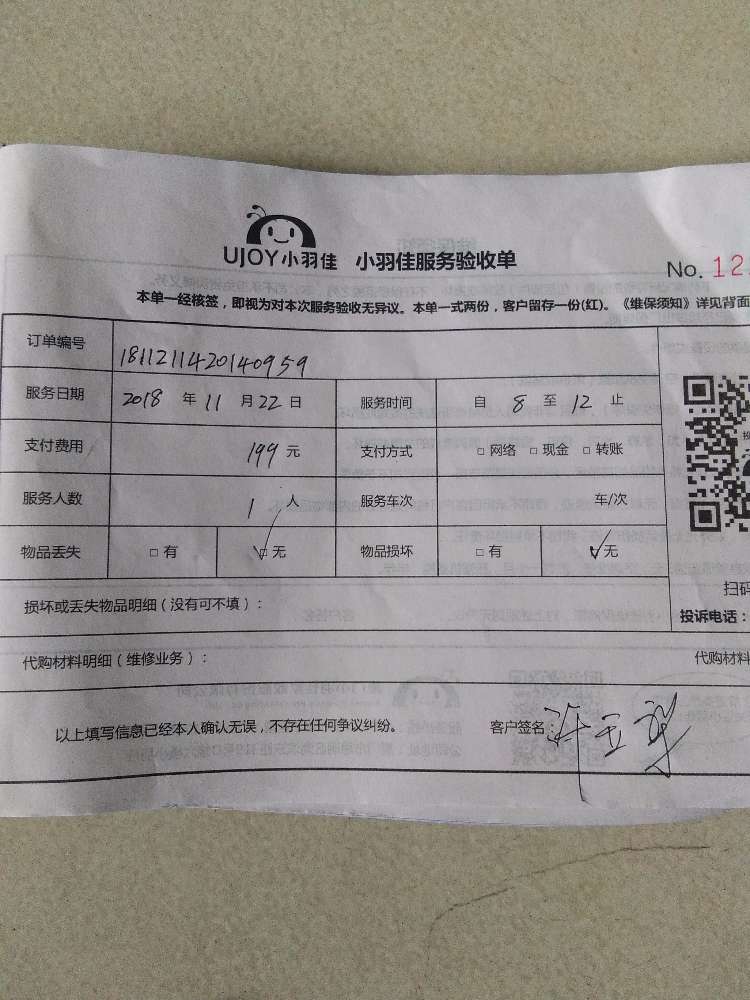 UJOY小羽佳 小羽佳服务验收单
No. 12
本单一经核签，即视为对本次服务验收无异议。本单一式两份，客户留存一份(红)。《维保须知》详见背面
订单编号 1811211420140959
服务日期 2018 年 11 月 22 日 服务时间 自 8 至 12 止
支付费用 199 元 支付方式 □ 网络 □ 现金 □ 转账
服务人数 1 人 服务车次 车/次
物品丢失 □ 有 ☑ 无 物品损坏 □ 有 ☑ 无
扫码
损坏或丢失物品明细（没有可不填）：
投诉电话：
代购材料明细（维修业务）： 代购材料
以上填写信息已经本人确认无误，不存在任何争议纠纷。 客户签名